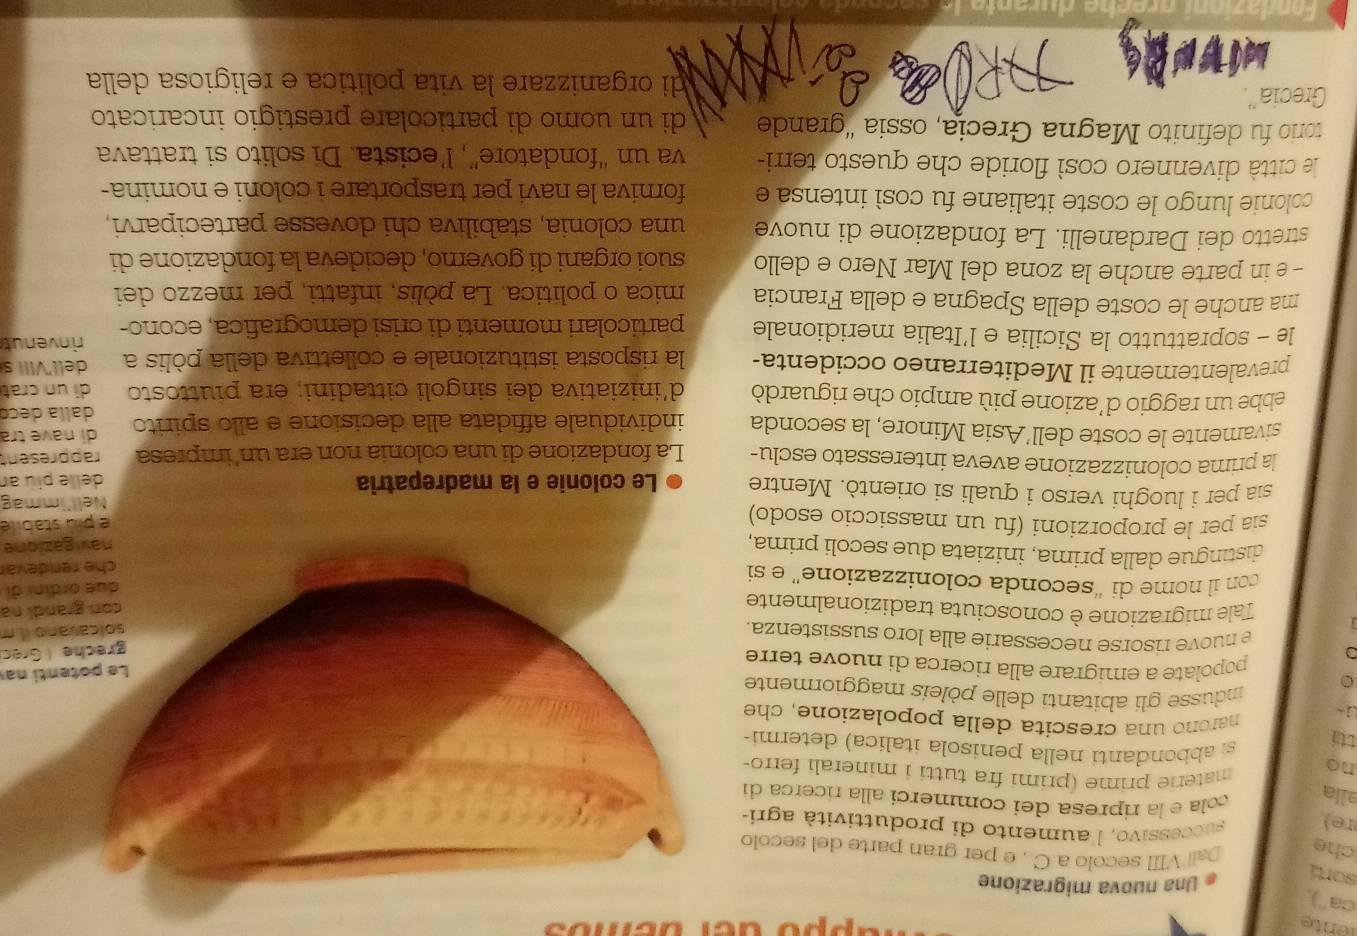 Una nuova migrazione
Dall'VIII secolo a.C., e per gran parte del secolo
successivo, l'aumento di produttività agri-
cola e la ripresa dei commerci alla ricerca di
materie prime (primi fra tutti i minerali ferro-
si abbondanti nella penisola italica) determi-
narono una crescita della popolazione, che
indusse gli abitanti delle pòleis maggiormente
popolate a emigrare alla ricerca di nuove terre
e nuove risorse necessarie alla loro sussistenza.
Tale migrazione è conosciuta tradizionalmente
con il nome di "seconda colonizzazione" e si
distingue dalla prima, iniziata due secoli prima,
sia per le proporzioni (fu un massiccio esodo)
sia per i luoghi verso i quali si orientò. Mentre
la prima colonizzazione aveva interessato esclu-
sivamente le coste dell'Asia Minore, la seconda
ebbe un raggio d'azione più ampio che riguardò
prevalentemente il Mediterraneo occidenta-
le – soprattutto la Sicilia e l'Italia meridionale
ma anche le coste della Spagna e della Francia
– e in parte anche la zona del Mar Nero e dello
stretto dei Dardanelli. La fondazione di nuove
colonie lungo le coste italiane fu così intensa e
le città divennero così floride che questo terri-
torio fu definito Magna Grecia, ossia "grande
Grecia".
Le colonie e la madrepatria
La fondazione di una colonia non era un'impresa
individuale affidata alla decisione e allo spirito
d'iniziativa dei singoli cittadini; era piuttosto
la risposta istituzionale e collettiva della pòlis a
particolari momenti di crisi demografica, econo-
mica o politica. La pòlis, infatti, per mezzo dei
suoi organi di governo, decideva la fondazione di
una colonia, stabiliva chi dovesse parteciparvi,
forniva le navi per trasportare i coloni e nomina-
va un "fondatore", l'ecista. Di solito si trattava
di un uomo di particolare prestigio incaricato
di organizzare la vita politica e religiosa della
Le potenti nav
greche I Grec
solcavano il m
con grandi na
due ordini di
che rendevan
navigazione
e più stabile
Nell'immag
delle più an
rappresent
di nave tra
dalla deco
di un crat
dell'VIII s
rinvenut
Fondazioni greche durante la seconda colonizzazione